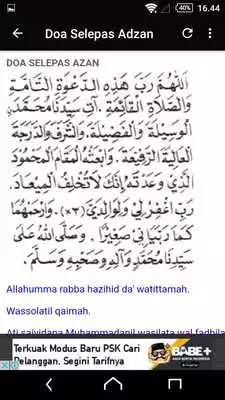 40% 16.44
Doa Selepas Adzan
DOA SELEPAS AZAN
اَللّٰهُمَّ رَبَّ هٰذِهِ الدَّعْوَةِ التَّامَّةِ
وَالصَّلَاةِ الْقَائِمَةِ. آتِ سَيِّدَنَا مُحَمَّدَنِ
الْوَسِيْلَةَ وَالْفَضِيْلَةَ. وَالشَّرَفَ وَالدَّرَجَةَ
الْعَالِيَةَ الرَّفِيْعَةَ. وَابْعَثْهُ الْمَقَامَ الْمَحْمُوْدَ
الَّذِيْ وَعَدْتَهُ إِنَّكَ لَاتُخْلِفُ الْمِيْعَادَ.
رَبِّ اغْفِرْ لِيْ وَلِوَالِدَيَّ (٣×). وَارْحَمْهُمَا
كَمَا رَبَّيَانِيْ صَغِيْرًا. وَصَلَّى اللهُ عَلَى
سَيِّدِنَا مُحَمَّدٍ وَآلِهِ وَصَحْبِهِ وَسَلَّمَ.
Allahumma rabba hazihid da' watittamah.
Wassolatil qaimah.
Ati saiyidana Muhammadanil wasilata wal fadhila
Terkuak Modus Baru PSK Cari
Pelanggan. Segini Tarifnya
BABE+